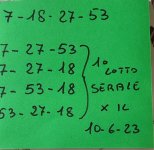 7-18-27-53
7-27-53
7-27-18
7-53-18
53-27-18
10
LOTTO
SERALE
X IL
10-6-23